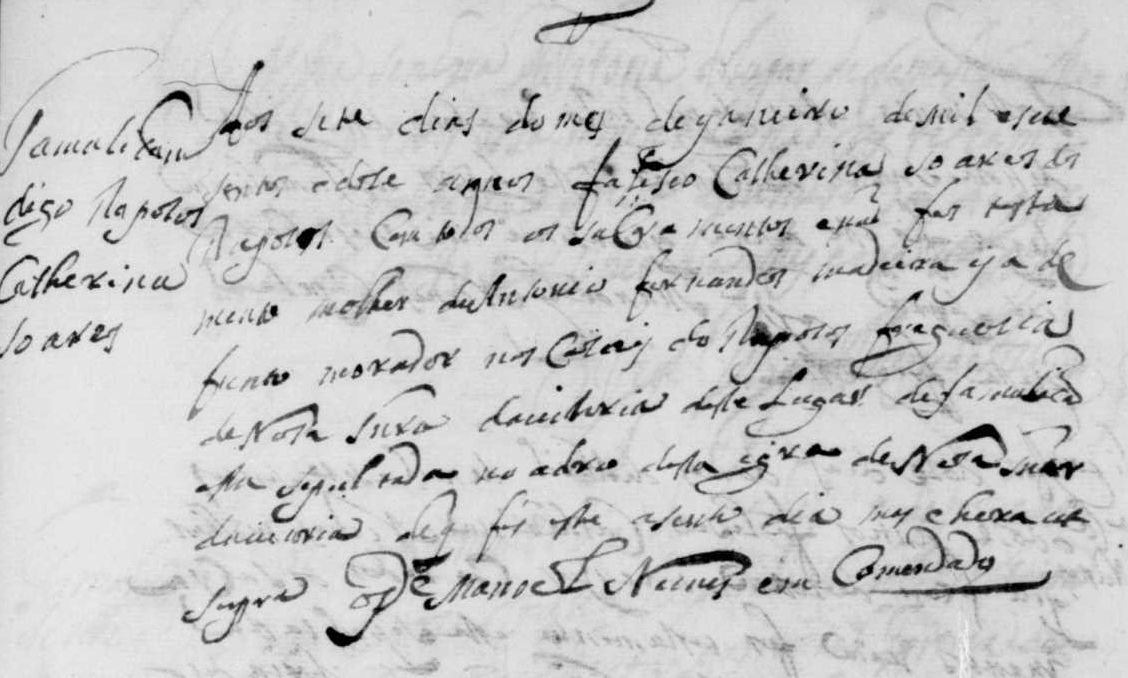 Famalicam
digo Raposos
Catherina
Soares
Aos sete dias do mes de yaneiro de mil e sete
sentos e dose annos faleseo Catherina Soares dos
Raposos Com todos os sacramentos e não fes testa
mento molher de Antonio fernandes madeira ya de
funto morador nos Casais do Raposos freguesia
de Nosa Snra da victoria deste Lugar de famalicão
esta sepultada no adro desta igra de Nosa Snra
da victoria de q fis este asento dia mes e hera ut
supra o Pe Manoel Nunes em Comendado